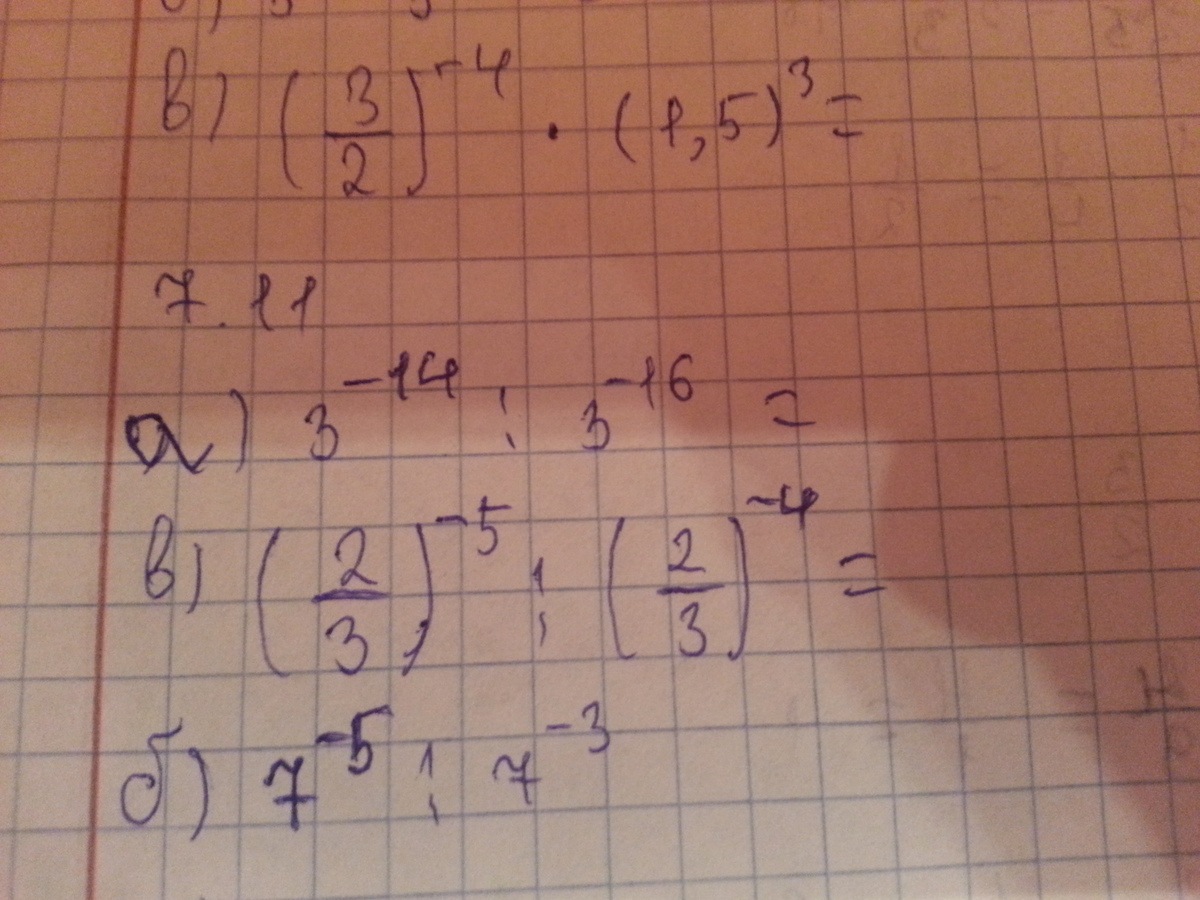 в) (3/2)^-4 · (1,5)^3 =
7.11
а) 3^-14 : 3^-16 =
в) (2/3)^-5 : (2/3)^-4 =
б) 7^-5 : 7^-3